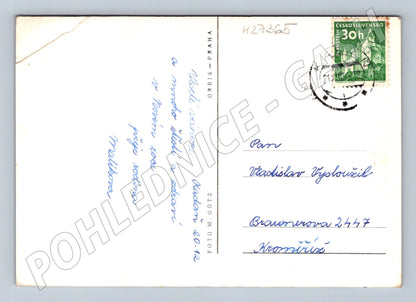 H27365
ČESKOSLOVENSKO
30 h
ORBIS - PRAHA
FOTO M. GÖTZ
Veselé vánoce
a mnoho štěstí a zdraví
v Novém roce
přeje rodina
Kadaň 20.12.
Pan
Vladislav Vysloužil
Braunerova 2447
Kroměříž
POHLEDNICE - GA